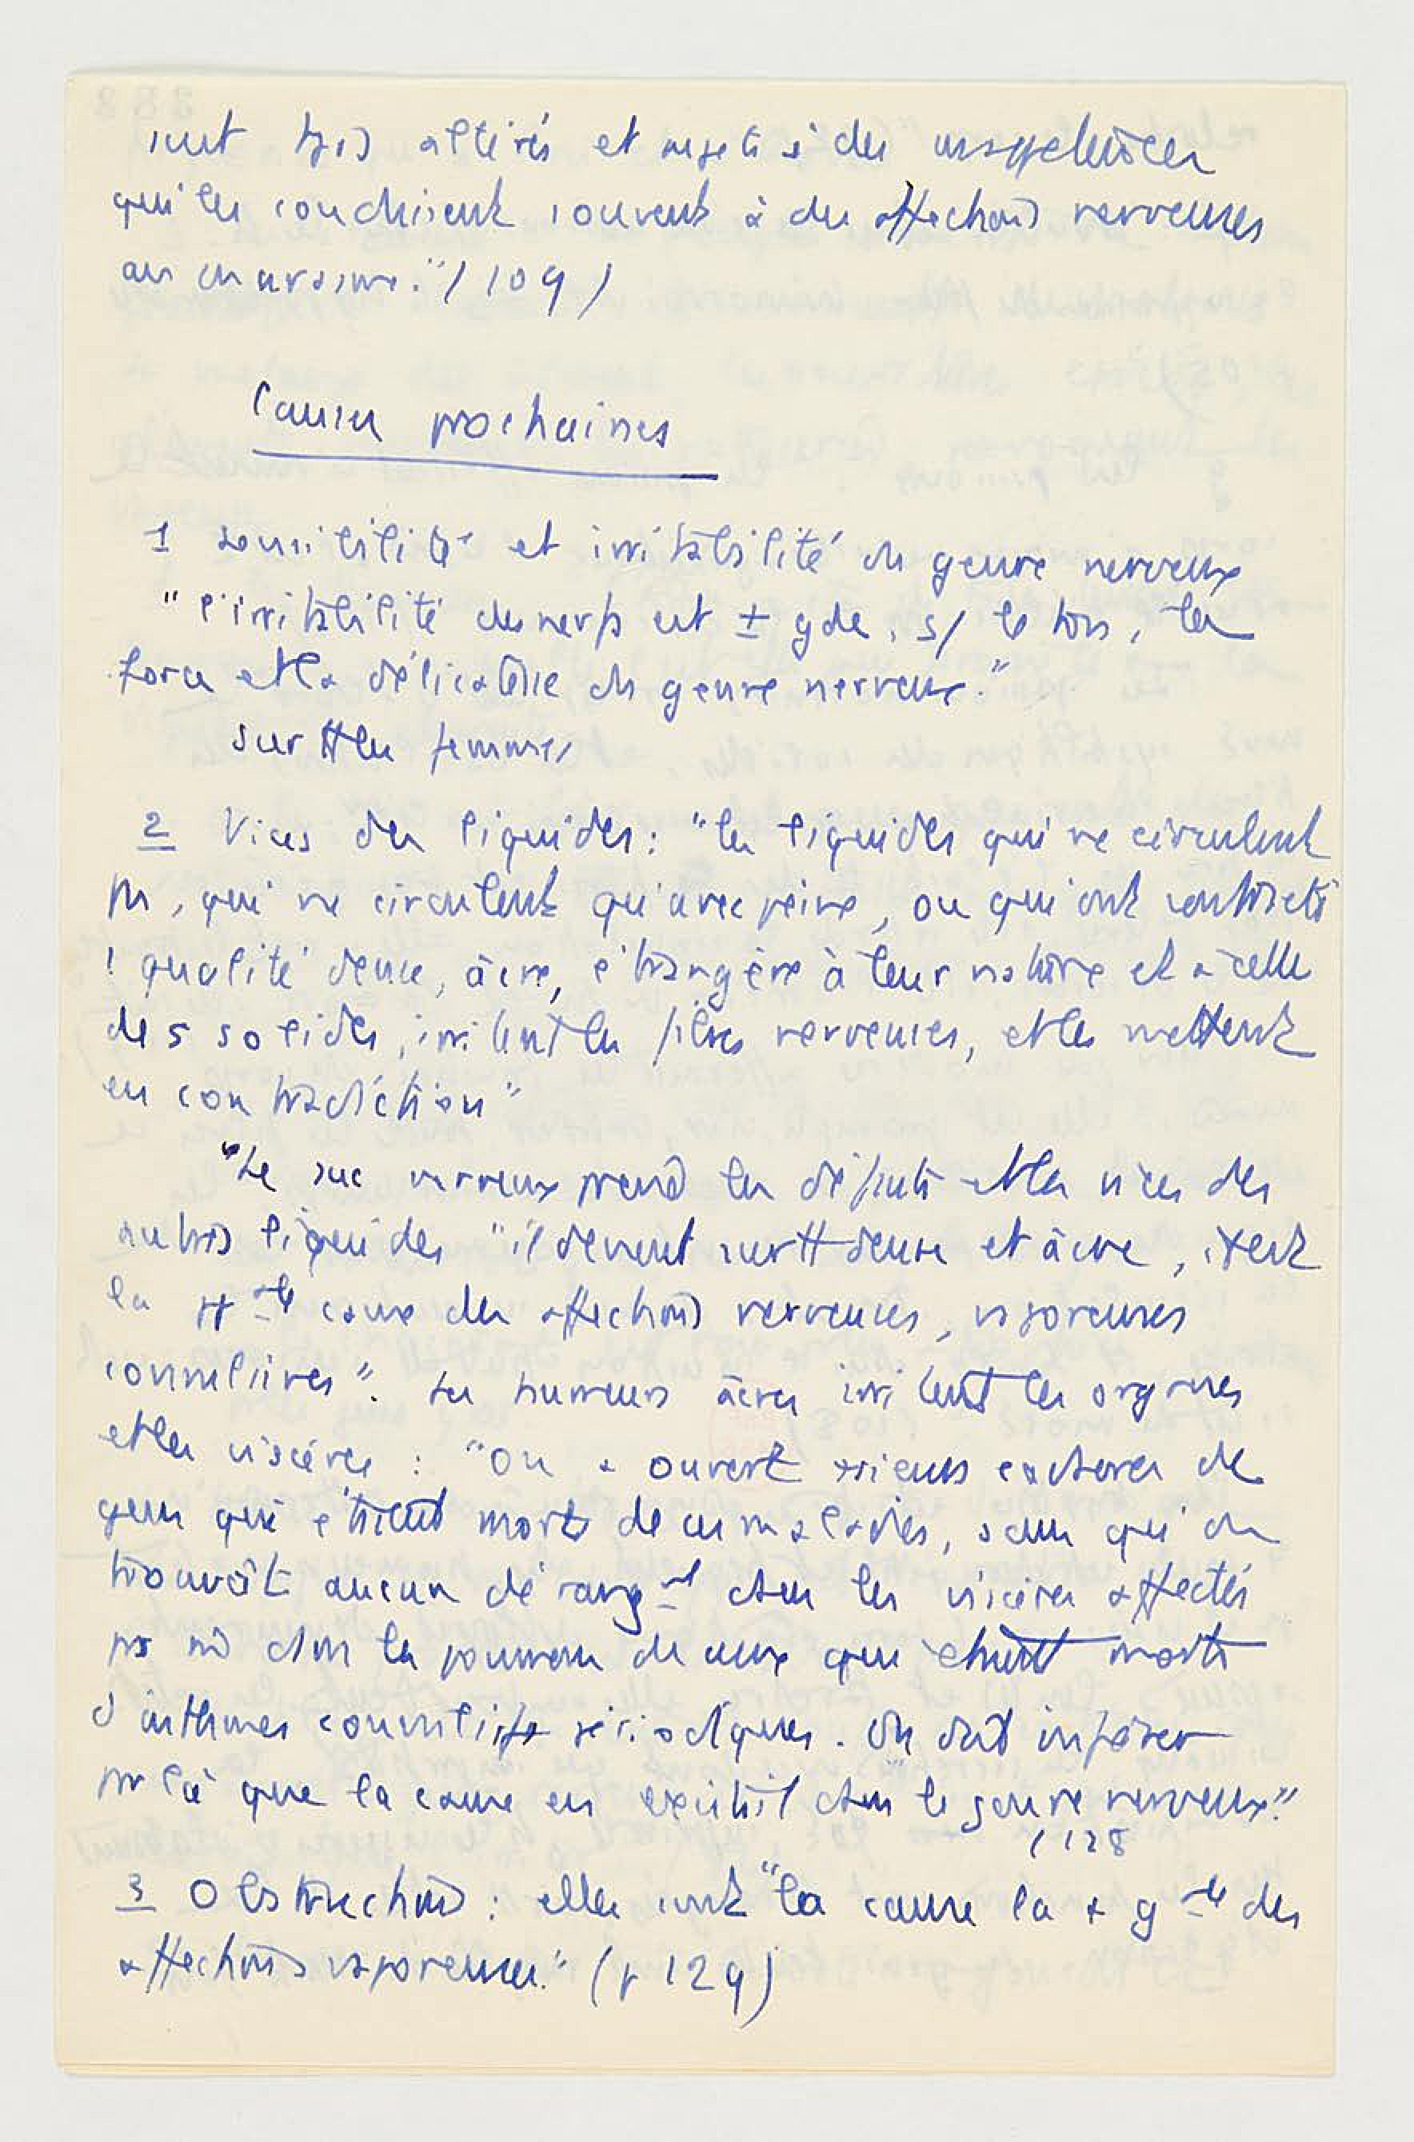 sont très altérés et sujets à des
qui les conduisent souvent à des affections nerveuses
au marasme." (109)
Causes prochaines
1 sensibilité et irritabilité du genre nerveux
"l'irritabilité des nerfs est ± gde, s/ le ton, la
force et la délicatesse du genre nerveux."
surtt les femmes
2 Vices des liquides : "les liquides qui ne circulent
pas, qui ne circulent qu'avec peine, ou qui ont contracté
1 qualité dense, âcre, étrangère à leur nature et à celle
des solides, irritent les fibres nerveuses, et les mettent
en contradiction"
"Le suc nerveux prend les défauts et les vices des
autres liquides "il devient surtt dense et âcre, et est
la cause des affections nerveuses, vaporeuses
convulsives". Les humeurs âcres irritent les organes
et les viscères : "On a ouvert plusieurs cadavres de
gens qui étaient morts de ces maladies, sans qu'on
trouvât aucun dérangt dans les viscères affectés
pas mê dans les poumons de ceux qui étaient morts
d'asthmes convulsifs périodiques. On doit inférer
par là que la cause en existait dans le genre nerveux."
(128
3 Obstructions : elles sont "la cause la + gle des
affections vaporeuses." (p 129)